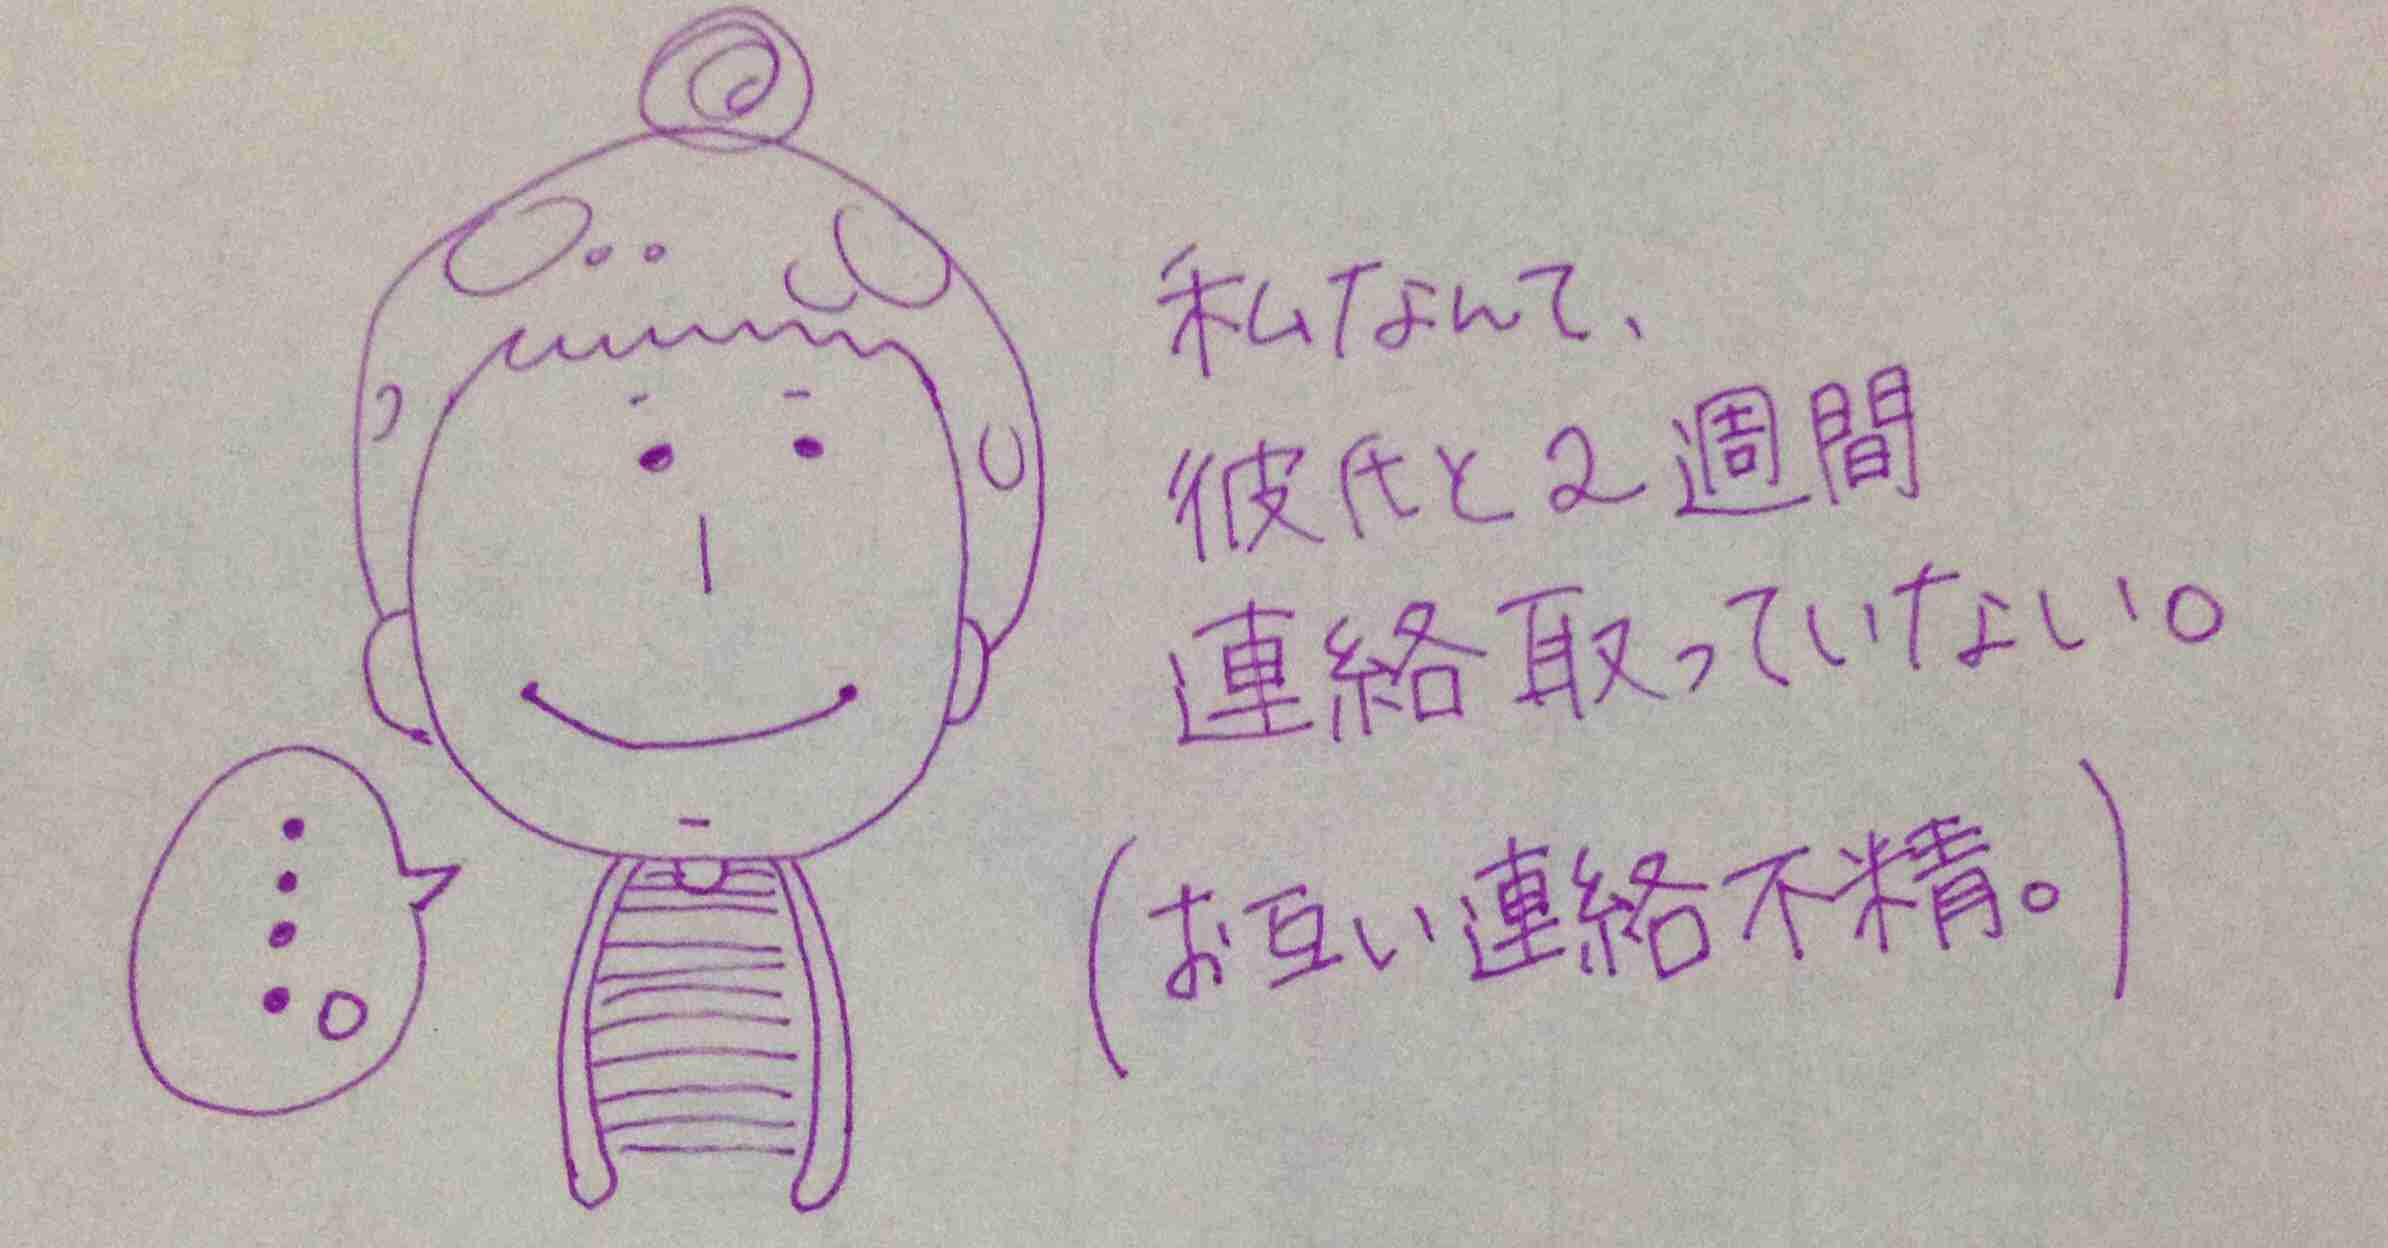 私なんて、
彼氏と2週間
連絡取っていない。
(お互い連絡不精。)
････。